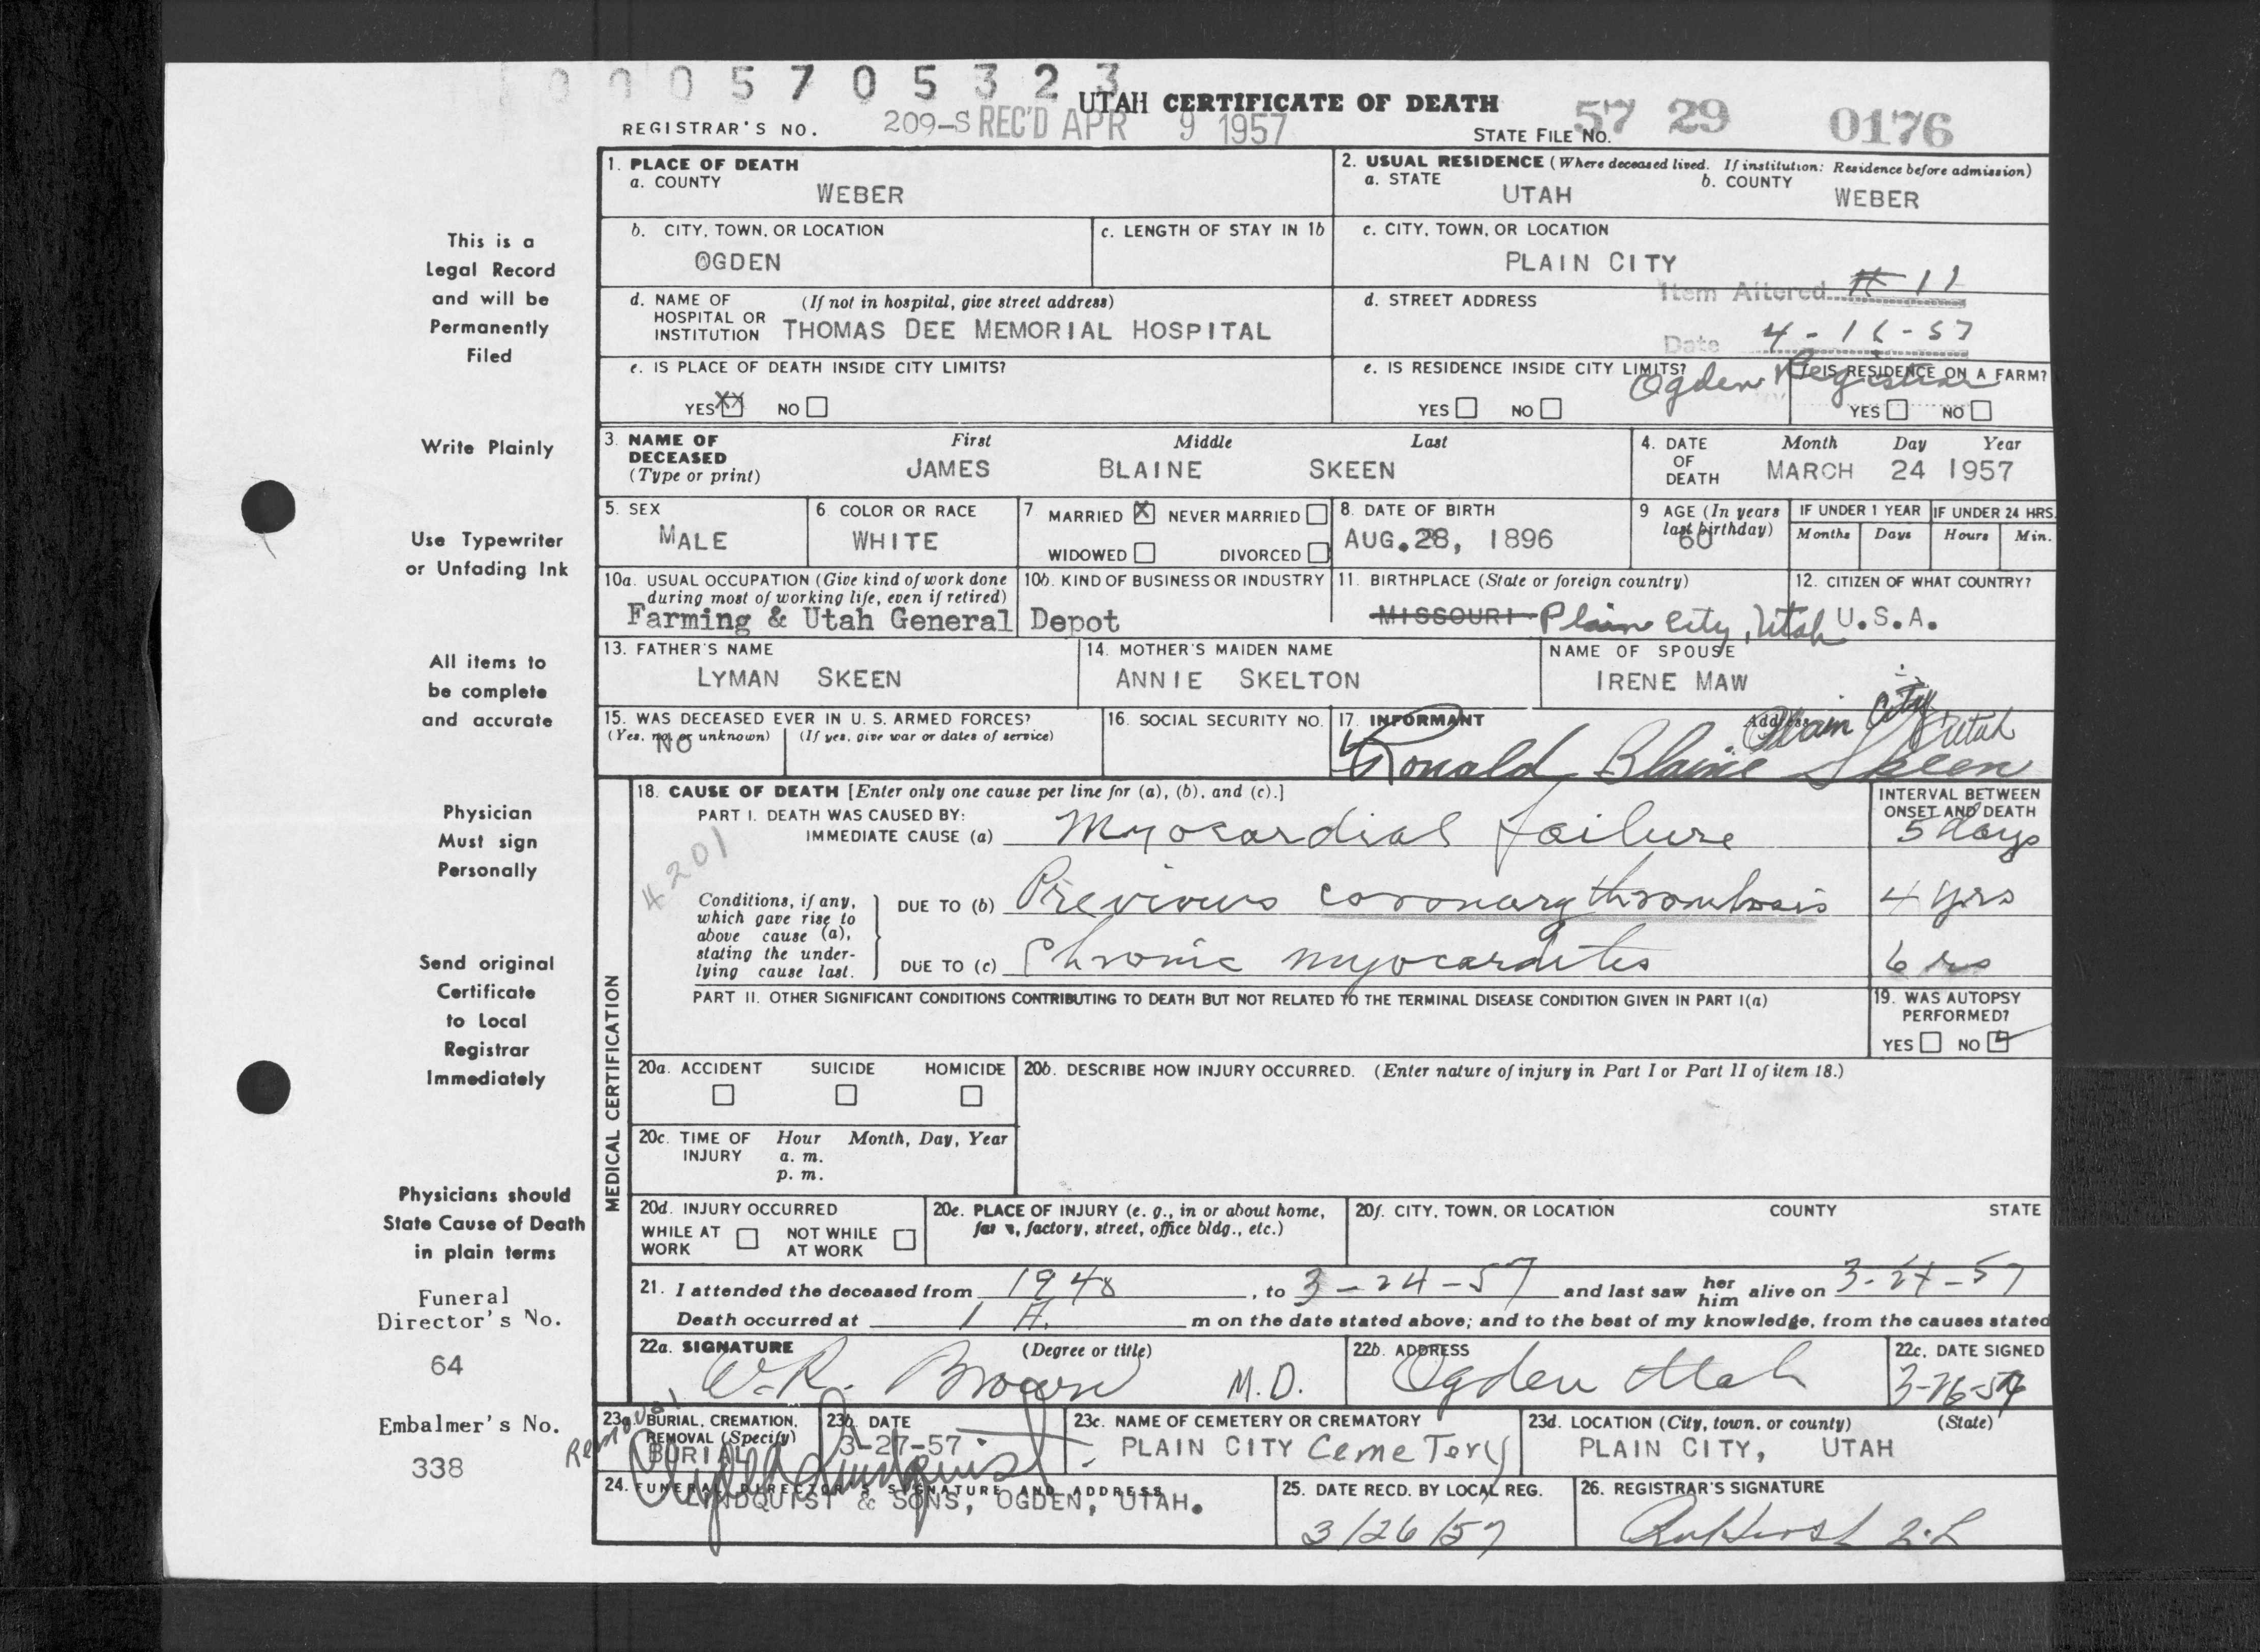 0005705323
UTAH CERTIFICATE OF DEATH
REGISTRAR'S NO. 209-S REC'D APR 9 1957
STATE FILE NO. 57 29 0176
This is a
Legal Record
and will be
Permanently
Filed
Write Plainly
Use Typewriter
or Unfading Ink
All items to
be complete
and accurate
Physician
Must sign
Personally
Send original
Certificate
to Local
Registrar
Immediately
Physicians should
State Cause of Death
in plain terms
Funeral
Director's No.
64
Embalmer's No.
338
1. PLACE OF DEATH
a. COUNTY
WEBER
2. USUAL RESIDENCE (Where deceased lived. If institution: Residence before admission)
a. STATE
UTAH
b. COUNTY
WEBER
b. CITY, TOWN, OR LOCATION
OGDEN
c. LENGTH OF STAY IN 1b
c. CITY, TOWN, OR LOCATION
PLAIN CITY
Item Altered # 11
d. NAME OF HOSPITAL OR INSTITUTION (If not in hospital, give street address)
THOMAS DEE MEMORIAL HOSPITAL
d. STREET ADDRESS
Date 4-16-57
Ogden Registrar
e. IS PLACE OF DEATH INSIDE CITY LIMITS?
YES XX NO
e. IS RESIDENCE INSIDE CITY LIMITS?
YES NO
f. IS RESIDENCE ON A FARM?
YES NO
3. NAME OF DECEASED (Type or print)
First Middle Last
JAMES BLAINE SKEEN
4. DATE OF DEATH
Month Day Year
MARCH 24 1957
5. SEX
MALE
6. COLOR OR RACE
WHITE
7 MARRIED X NEVER MARRIED
WIDOWED DIVORCED
8. DATE OF BIRTH
AUG. 28, 1896
9 AGE (In years last birthday)
60
IF UNDER 1 YEAR
Months Days
IF UNDER 24 HRS.
Hours Min.
10a. USUAL OCCUPATION (Give kind of work done during most of working life, even if retired)
10b. KIND OF BUSINESS OR INDUSTRY
Farming & Utah General Depot
11. BIRTHPLACE (State or foreign country)
MISSOURI Plain City, Utah
12. CITIZEN OF WHAT COUNTRY?
U.S.A.
13. FATHER'S NAME
LYMAN SKEEN
14. MOTHER'S MAIDEN NAME
ANNIE SKELTON
NAME OF SPOUSE
IRENE MAW
15. WAS DECEASED EVER IN U.S. ARMED FORCES?
(Yes, no, or unknown) (If yes, give war or dates of service)
NO
16. SOCIAL SECURITY NO.
17. INFORMANT
Address
Plain City, Utah
Ronald Blaine Skeen
MEDICAL CERTIFICATION
18. CAUSE OF DEATH [Enter only one cause per line for (a), (b), and (c).]
INTERVAL BETWEEN ONSET AND DEATH
PART I. DEATH WAS CAUSED BY:
IMMEDIATE CAUSE (a) Myocardial failure 5 days
4201
Conditions, if any, which gave rise to above cause (a), stating the underlying cause last.
DUE TO (b) Previous coronary thrombosis 4 yrs
DUE TO (c) Chronic myocarditis
PART II. OTHER SIGNIFICANT CONDITIONS CONTRIBUTING TO DEATH BUT NOT RELATED TO THE TERMINAL DISEASE CONDITION GIVEN IN PART I(a)
19. WAS AUTOPSY PERFORMED?
YES NO
20a. ACCIDENT SUICIDE HOMICIDE
20b. DESCRIBE HOW INJURY OCCURRED. (Enter nature of injury in Part I or Part II of item 18.)
20c. TIME OF INJURY
Hour Month, Day, Year
a. m.
p. m.
20d. INJURY OCCURRED
WHILE AT WORK NOT WHILE AT WORK
20e. PLACE OF INJURY (e. g., in or about home, farm, factory, street, office bldg., etc.)
20f. CITY, TOWN, OR LOCATION COUNTY STATE
21. I attended the deceased from 1948, to 3-24-57 and last saw her him alive on 3-24-57
Death occurred at 1 A. m on the date stated above; and to the best of my knowledge, from the causes stated
22a. SIGNATURE (Degree or title)
W.R. Brown M.D.
22b. ADDRESS
Ogden Utah
22c. DATE SIGNED
3-26-57
23a. BURIAL, CREMATION, REMOVAL (Specify)
Removal
BURIAL
23b. DATE
3-27-57
23c. NAME OF CEMETERY OR CREMATORY
PLAIN CITY CEMETERY
23d. LOCATION (City, town, or county) (State)
PLAIN CITY, UTAH
24. FUNERAL DIRECTOR'S SIGNATURE AND ADDRESS
LINDQUIST & SONS, OGDEN, UTAH.
25. DATE RECD. BY LOCAL REG.
3/26/57
26. REGISTRAR'S SIGNATURE